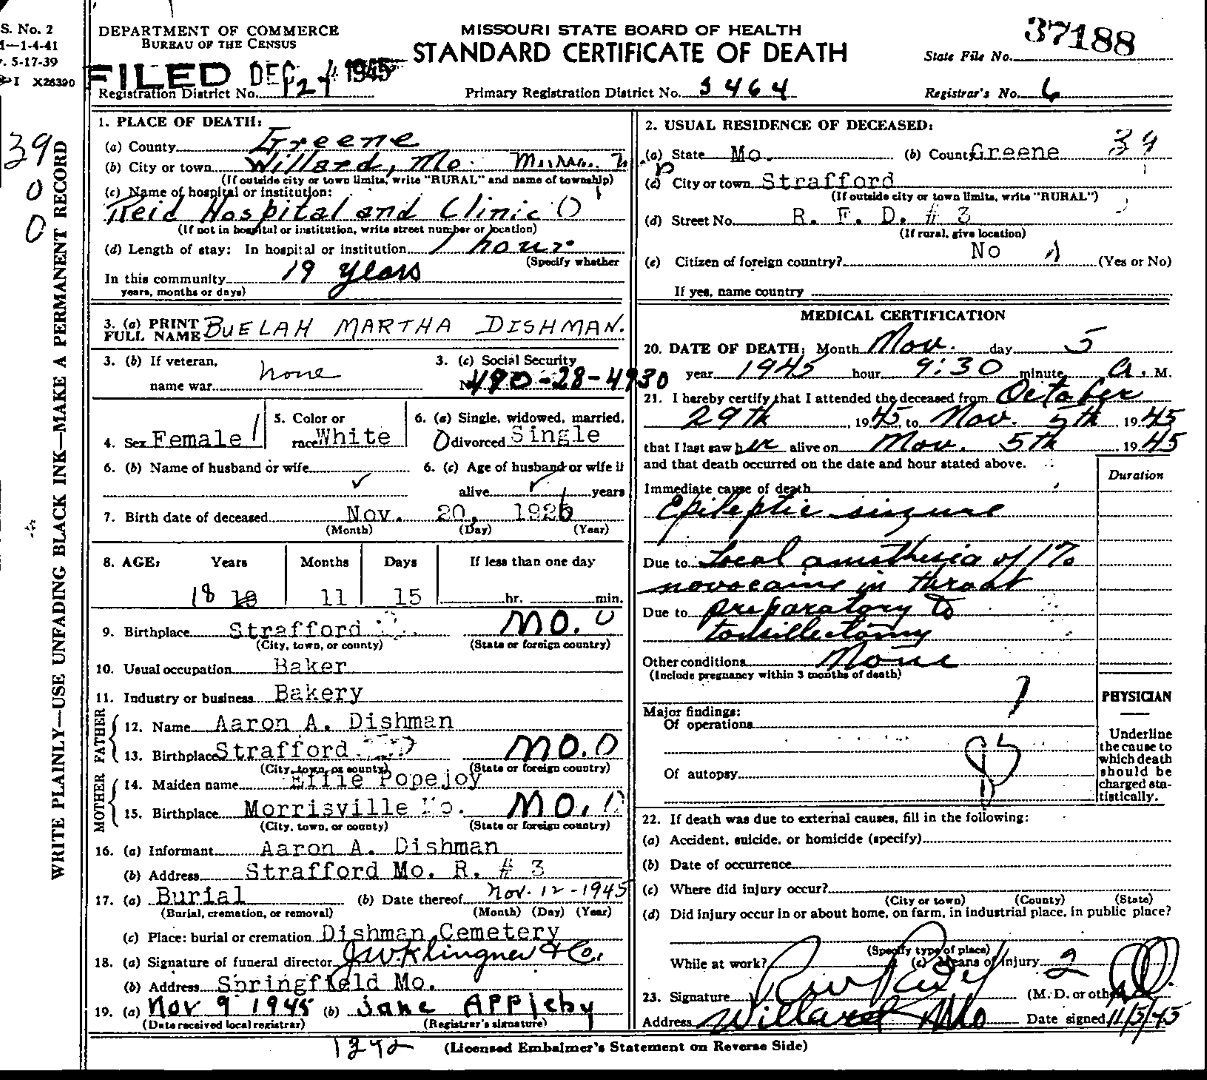 S. No. 2
M—1-4-41
5-17-39
I X26390
DEPARTMENT OF COMMERCE
BUREAU OF THE CENSUS
MISSOURI STATE BOARD OF HEALTH
STANDARD CERTIFICATE OF DEATH
State File No. 37188
FILED DEC 1945
Registration District No. 127
Primary Registration District No. 5464
Registrar's No. 6
WRITE PLAINLY—USE UNFADING BLACK INK—MAKE A PERMANENT RECORD
39
0
0
1. PLACE OF DEATH:
(a) County Greene
(b) City or town Willard, Mo.
(If outside city or town limits, write "RURAL" and name of township)
(c) Name of hospital or institution:
Reid Hospital and Clinic
(If not in hospital or institution, write street number or location)
(d) Length of stay: In hospital or institution 1 hour
(Specify whether
In this community 19 years
years, months or days)
3. (a) PRINT FULL NAME BUELAH MARTHA DISHMAN.
3. (b) If veteran, name war none
3. (c) Social Security No. 490-28-4930
4. Sex Female
5. Color or race White
6. (a) Single, widowed, married, divorced Single
6. (b) Name of husband or wife
6. (c) Age of husband or wife if alive years
7. Birth date of deceased Nov. 20, 1926
(Month) (Day) (Year)
8. AGE: Years Months Days If less than one day
18 11 15 hr. min.
9. Birthplace Strafford MO.
(City, town, or county) (State or foreign country)
10. Usual occupation Baker
11. Industry or business Bakery
FATHER
12. Name Aaron A. Dishman
13. Birthplace Strafford MO.
(City, town, or county) (State or foreign country)
MOTHER
14. Maiden name Effie Popejoy
15. Birthplace Morrisville Mo. MO.
(City, town, or county) (State or foreign country)
16. (a) Informant Aaron A. Dishman
(b) Address Strafford Mo. R. # 3
17. (a) Burial (b) Date thereof Nov. 12-1945
(Burial, cremation, or removal) (Month) (Day) (Year)
(c) Place: burial or cremation Dishman Cemetery
18. (a) Signature of funeral director J W Klingner & Co.
(b) Address Springfield Mo.
19. (a) Nov 9 1945 (b) Jane Appleby
(Date received local registrar) (Registrar's signature)
2. USUAL RESIDENCE OF DECEASED:
39
(a) State Mo. (b) County Greene
(c) City or town Strafford
(If outside city or town limits, write "RURAL")
(d) Street No. R. F. D. # 3
(If rural, give location)
(e) Citizen of foreign country? No (Yes or No)
If yes, name country
MEDICAL CERTIFICATION
20. DATE OF DEATH: Month Nov. day 5
year 1945 hour 9:30 minute A. M.
21. I hereby certify that I attended the deceased from October
29th, 1945, to Nov. 5th, 1945
that I last saw her alive on Nov. 5th, 1945
and that death occurred on the date and hour stated above.
Duration
Immediate cause of death
Epileptic siezure
Due to Local anesthesia of 1%
novocaine in throat
Due to preparatory to
tonsillectomy
Other conditions None
(Include pregnancy within 3 months of death)
Major findings:
Of operations
Of autopsy
PHYSICIAN
Underline the cause to which death should be charged statistically.
22. If death was due to external causes, fill in the following:
(a) Accident, suicide, or homicide (specify)
(b) Date of occurrence
(c) Where did injury occur?
(City or town) (County) (State)
(d) Did injury occur in or about home, on farm, in industrial place, in public place?
(Specify type of place)
While at work? (e) Means of injury 2
23. Signature (M. D. or other)
Address Willard Mo Date signed 11/5/45
1272
(Licensed Embalmer's Statement on Reverse Side)